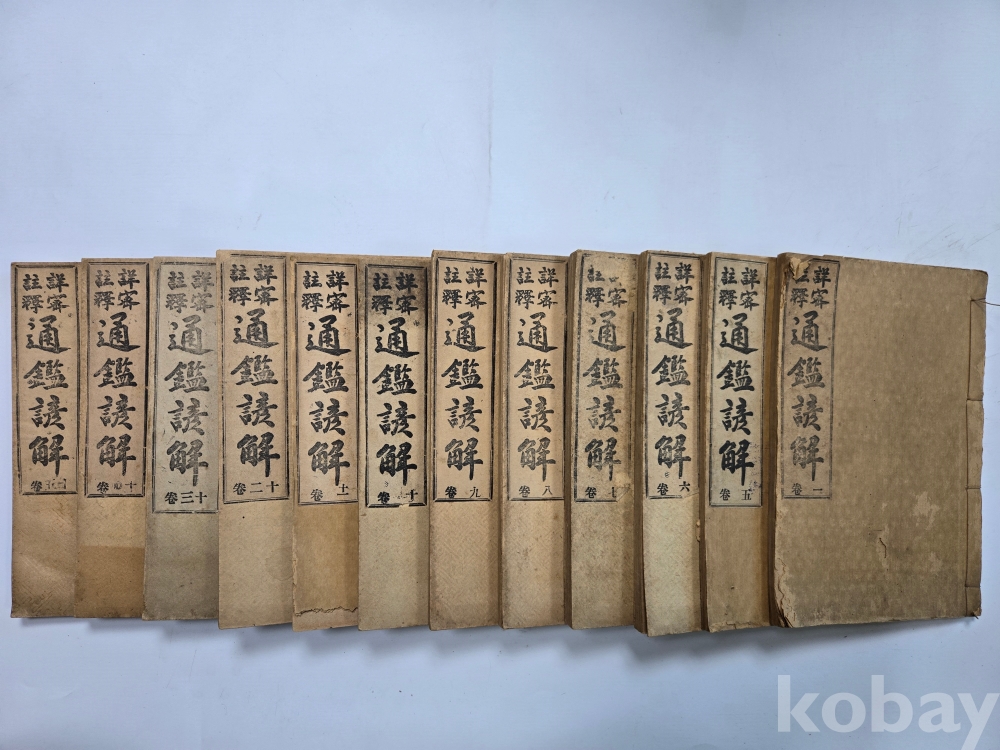 詳密
註釋
通鑑諺解
一卷
詳密
註釋
通鑑諺解
五卷
詳密
註釋
通鑑諺解
六卷
密
註釋
通鑑諺解
七卷
詳密
註釋
通鑑諺解
八卷
詳密
註釋
通鑑諺解
九卷
詳密
註釋
通鑑諺解
十卷
詳密
註釋
通鑑諺解
十一
詳密
註釋
通鑑諺解
十二卷
詳密
註釋
通鑑諺解
十三卷
詳密
註釋
通鑑諺解
十卷
詳密
註釋
通鑑諺解
卷
kobay